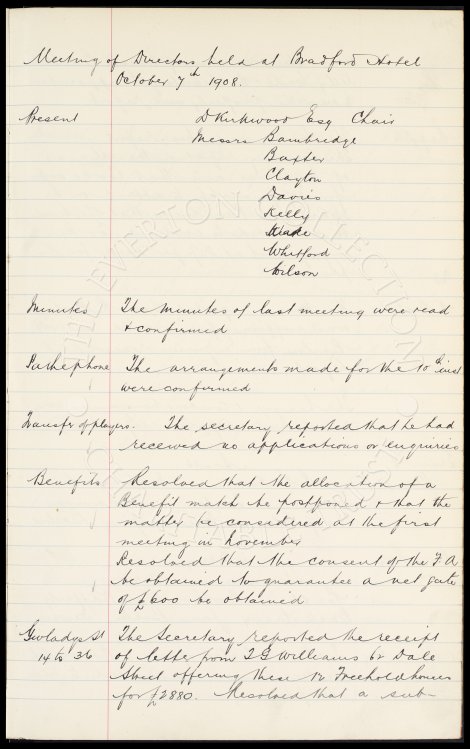 Meeting of Directors held at Bradford Hotel
October 7th 1908.
Present D Kirkwood Esq Chair
Messrs Bambridge
Baxter
Clayton
Davies
Kelly
Wade
Whitford
Wilson
Minutes The minutes of last meeting were read
& confirmed
Pathephone The arrangements made for the 10th inst
were confirmed
Transfr of players. The secretary reported that he had
received no applications or enquiries
Benefits Resolved that the allocation of a
Benefit match be postponed & that the
matter be considered at the first
meeting in November
Resolved that the consent of the F A
be obtained to guarantee a net gate
of £600 be obtained
Gwladys St The Secretary reported the receipt
14 to 36 of letter from T G Williams 62 Dale
Street offering these 12 Freehold houses
for £2880. Resolved that a sub-
THE EVERTON COLLECTION